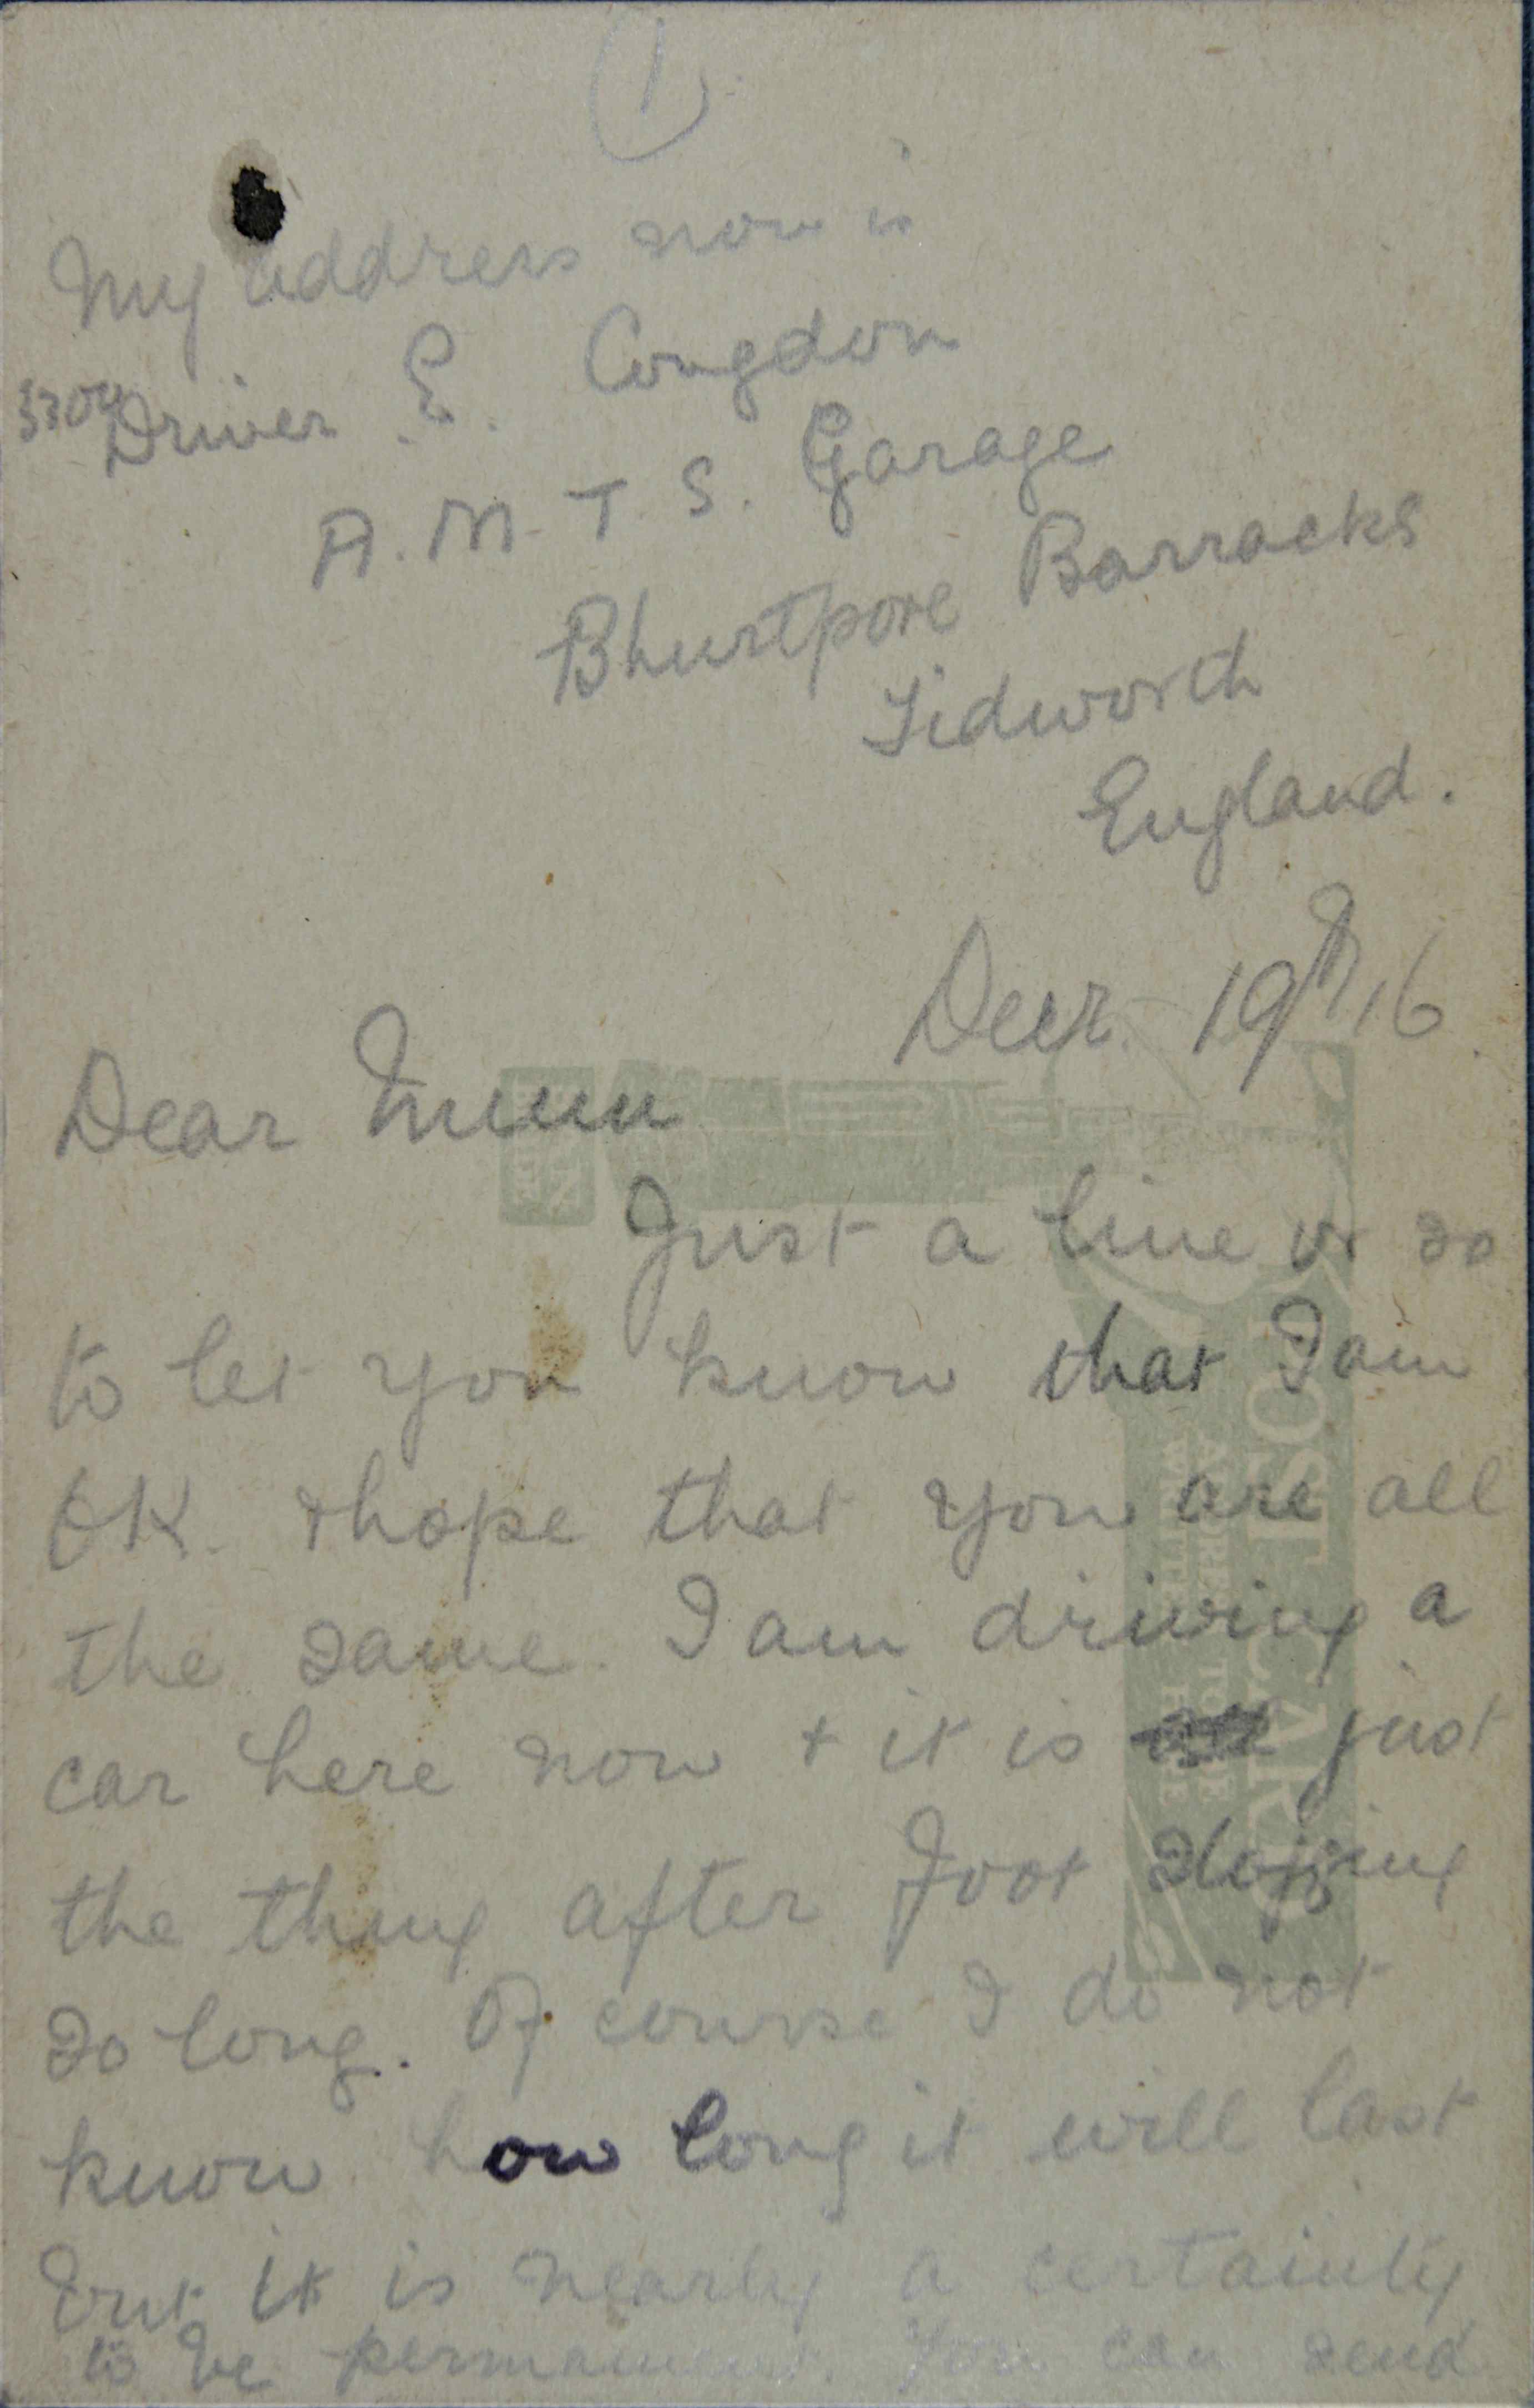 1
My address now is
Driver E. Congdon
A. M. T. S. Garage
Bhurtpore Barracks
Tidworth
England.
Decr. 19th 16
Dear Mum
Just a line or so
to let you know that I am
OK. & hope that you are all
the same. I am driving a
car here now + it is just
the thing after foot slogging
so long. Of course I do not
know how long it will last
but it is nearly a certainty
to be permanent. You can send
POST CARD